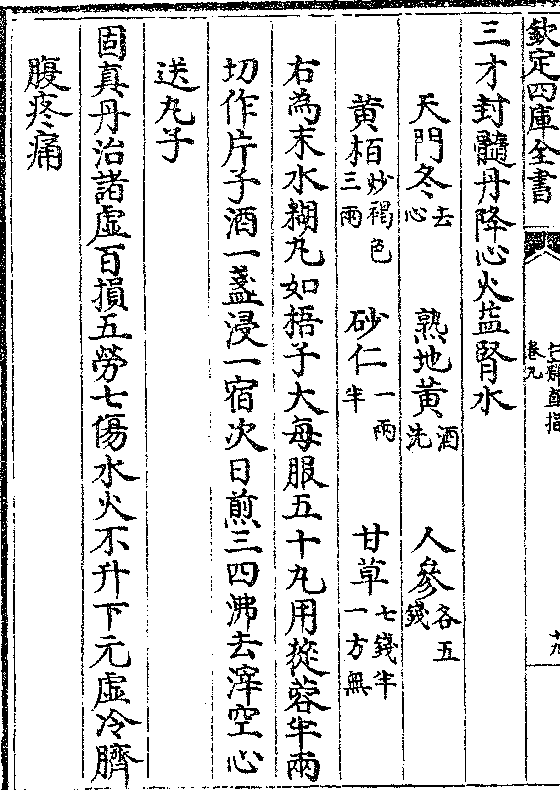 欽定四庫全書
卷九
三才封髓丹降心火益腎水
天門冬去心 熟地黄酒洗 人參各五錢
黄栢炒褐色三兩 砂仁一兩半 甘草七錢半一方無
右為末水糊丸如梧子大每服五十丸用蓯蓉半兩
切作片子酒一盞浸一宿次日煎三四沸去滓空心
送丸子
固真丹治諸虛百損五勞七傷水火不升下元虛冷臍
腹疼痛